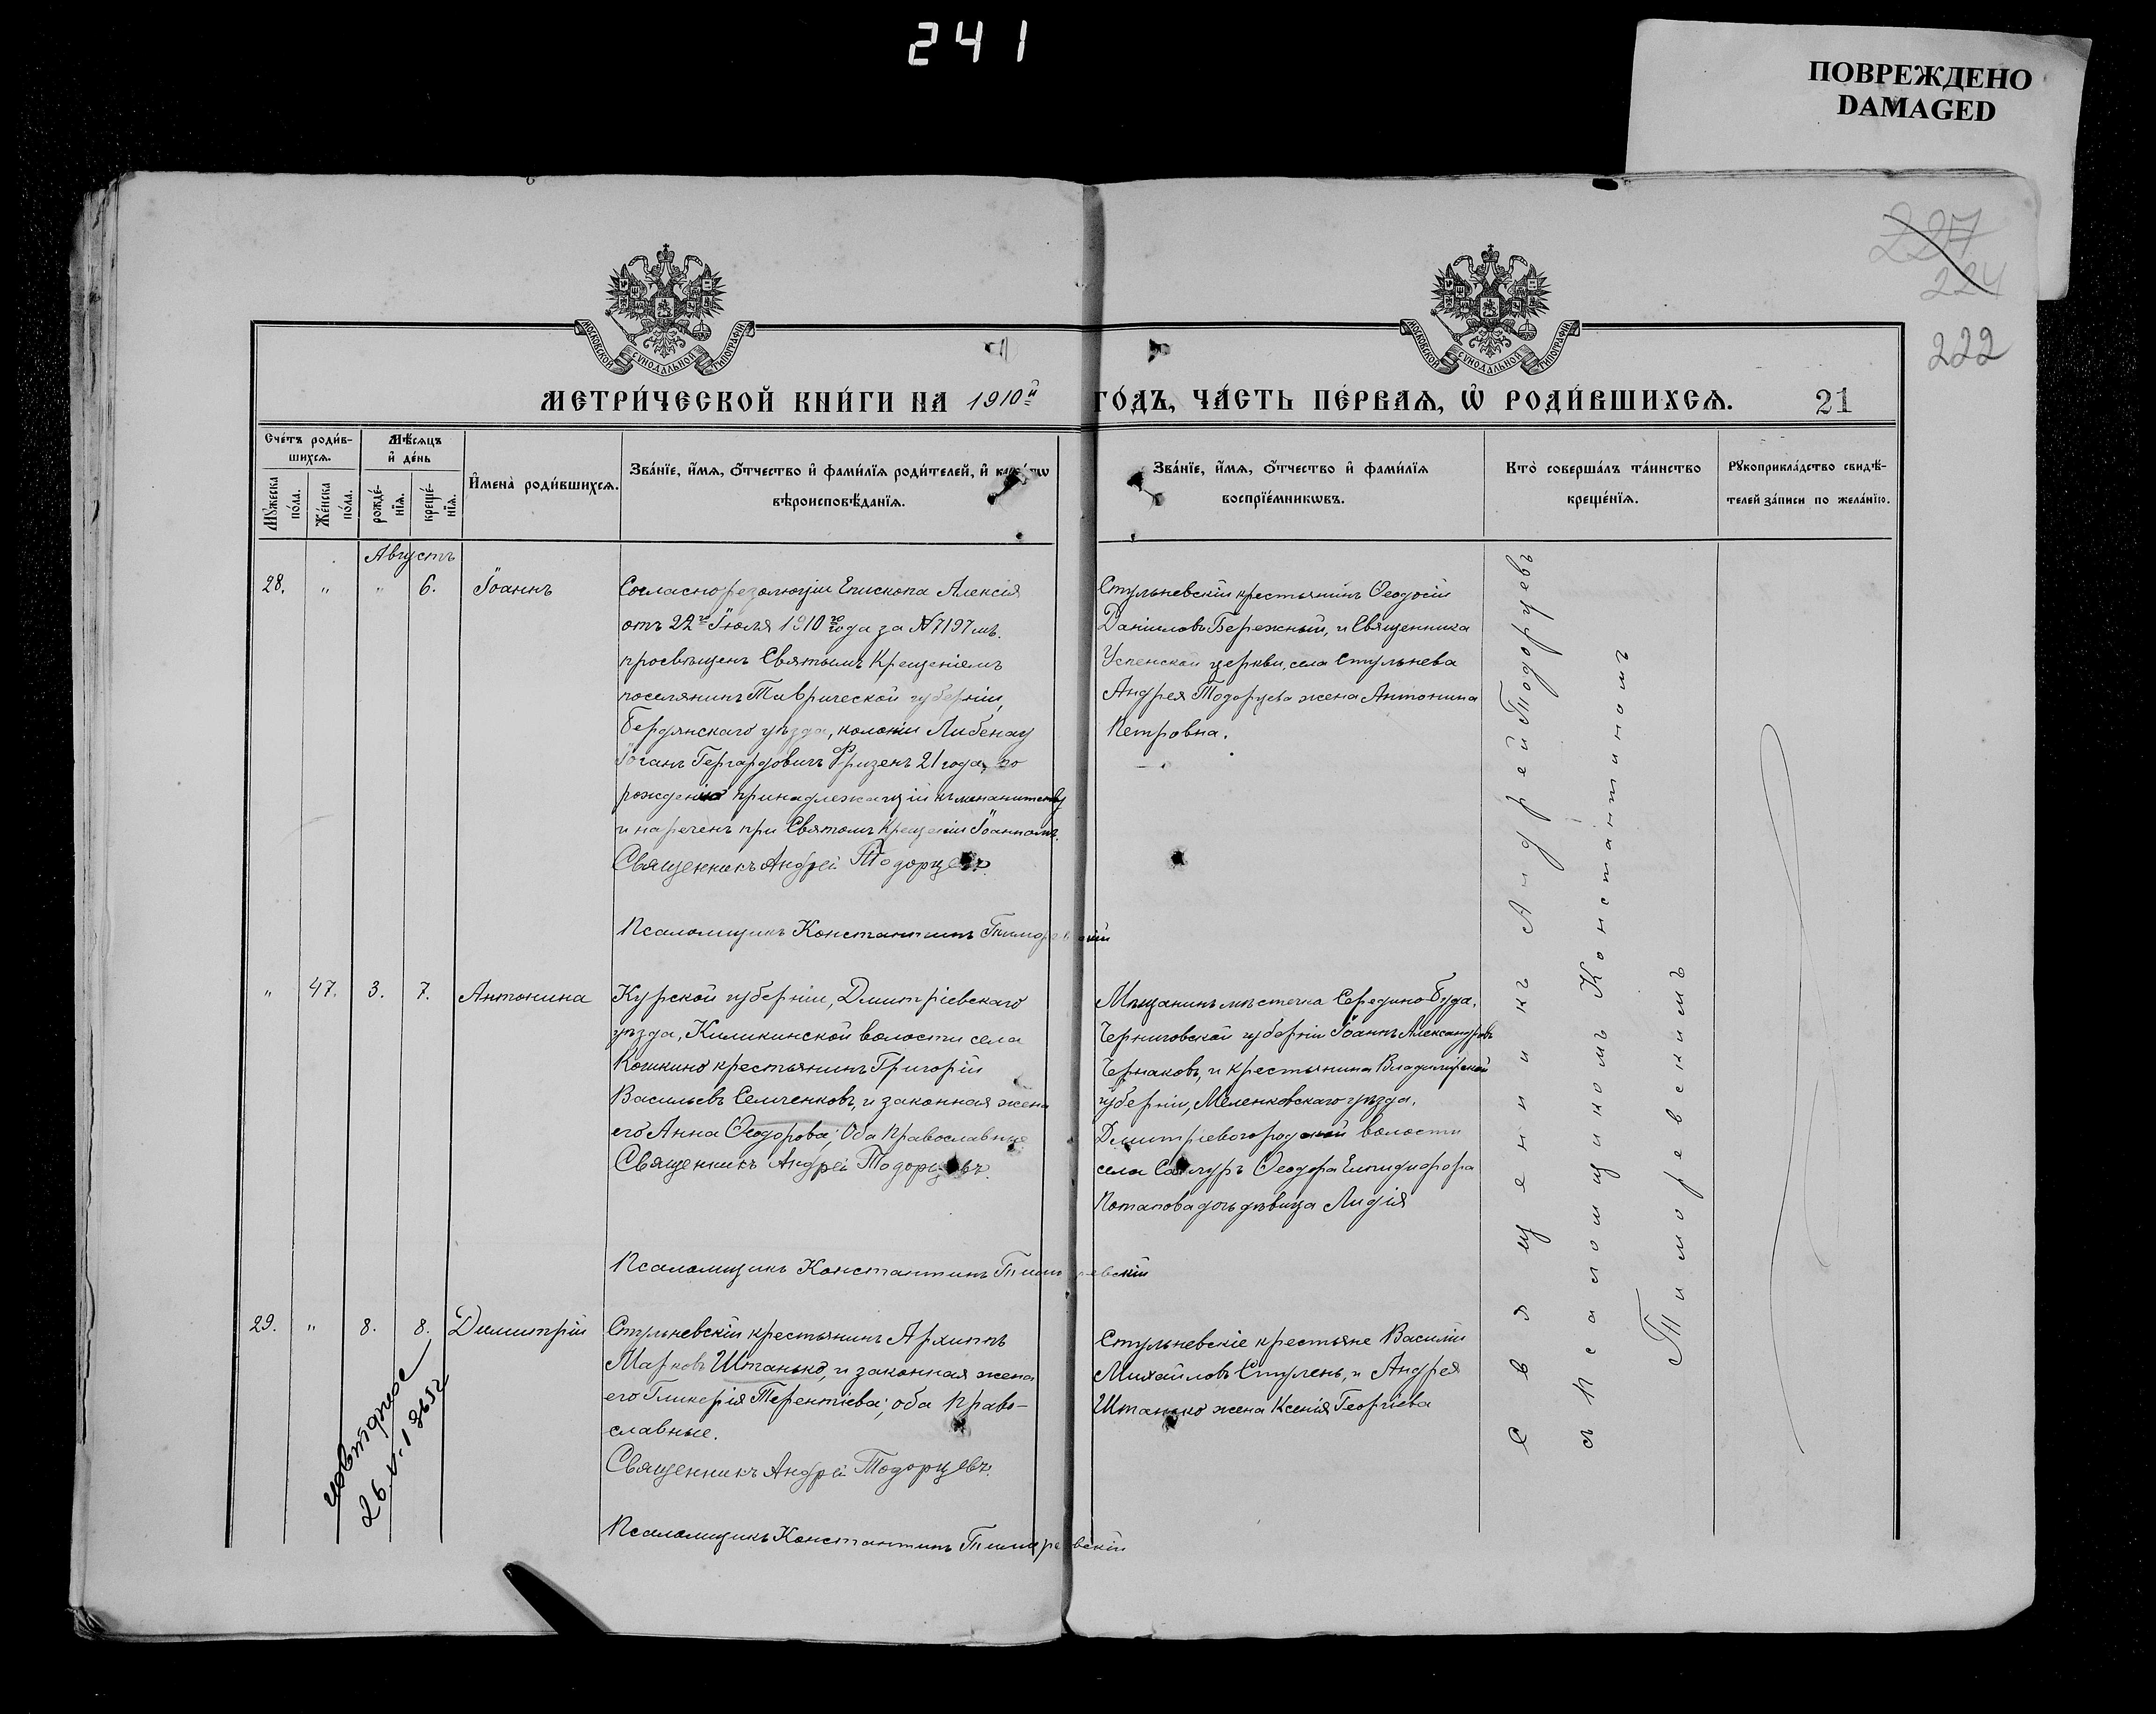 241
ПОВРЕЖДЕНО
DAMAGED
227
224
222
МОСКОВСКОЙ СѴНОДАЛЬНОЙ ТИПОГРАФІИ
МОСКОВСКОЙ СѴНОДАЛЬНОЙ ТИПОГРАФІИ
МЕТРИ́ЧЕСКОЙ КНИ́ГИ НА 1910й ГО́ДЪ, ЧА́СТЬ ПЕ́РВАЯ, Ѡ҆ РОДИ́ВШИХСЯ. 21
Сче́тъ роди́в-
шихсѧ.
Мꙋ́жеска
по́ла.
Же́нска
по́ла.
Мѣ́сѧцъ
и҆ де́нь
рожде́-
нїѧ.
креще́-
нїѧ.
И҆мена̀ роди́вшихсѧ.
Зва́нїе, и҆́мѧ, ѻ҆́тчество и҆ фами́лїѧ роди́телей, и҆
вѣроисповѣ́данїѧ.
Зва́нїе, и҆́мѧ, ѻ҆́тчество и҆ фами́лїѧ
воспрїе́мникѡвъ.
Кто̀ соверша́лъ та́инство
креще́нїѧ.
Рꙋкоприкла́дство свидѣ́-
телей за́писи по жела́нїю.
Августъ
28. " " 6. Іоаннъ
Согласно резолюціи Епископа Алексія
отъ 22го Іюля 1910го года за №7197мъ.
просвѣщенъ Святымъ Крещеніемъ
поселянинъ Таврической губерніи,
Бердянскаго уѣзда, колоніи Либенау
Іоганъ Гергардовичъ Фризенъ 21 года, по
рожденію принадлежащій къ менанитству
и нареченъ при Святомъ Крещеніи Іоанномъ.
Священникъ Андрей Тодорцевъ.
Псаломщикъ Константинъ Тиморевскій
Стульневскій крестьянинъ Ѳеодосій
Даніиловъ Бережный, и Священника
Успенской церкви, села Стульнева
Андрея Тодорцева жена Антонина
Петровна.
" 47. 3. 7. Антонина
Курской губерніи, Дмитріевскаго
уѣзда, Киликинской волости села
Кошкино крестьянинъ Григорій
Васильевъ Семченковъ, и законная жена
его Анна Ѳеодорова; Оба Православные
Священникъ Андрей Тодорцевъ.
Псаломщикъ Константинъ Тиморевскій
Мѣщанинъ мѣстечка Середино-Буда,
Черниговской губерніи Іоаннъ Александровъ
Чернаковъ, и крестьянина Владимірской
губерніи, Меленковскаго уѣзда,
Дмитріевогородской волости
села Ѳеодора Елпидифора
Потапова дочь дѣвица Лидія
29. " 8. 8. Димитрій
Стульневскій крестьянинъ Архиппъ
Марковъ Штанько, и законная жена
его Гликерія Терентіева; оба Право-
славные.
Священникъ Андрей Тодорцевъ.
Псаломщикъ Константинъ Тиморевскій
Стульневскіе крестьяне Василій
Михайловъ Ступень, и Андрея
Штанько жена Ксенія Георгіева
Священникъ Андрей Тодорцевъ
съ Псаломщикомъ Константиномъ
Тиморевскимъ